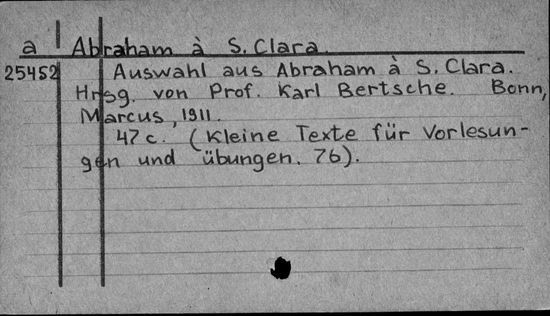 a Abraham à S. Clara.
25452 Auswahl aus Abraham à S. Clara.
Hrsg. von Prof. Karl Bertsche. Bonn,
Marcus, 1911.
47 c. (Kleine Texte für Vorlesun-
gen und übungen. 76).